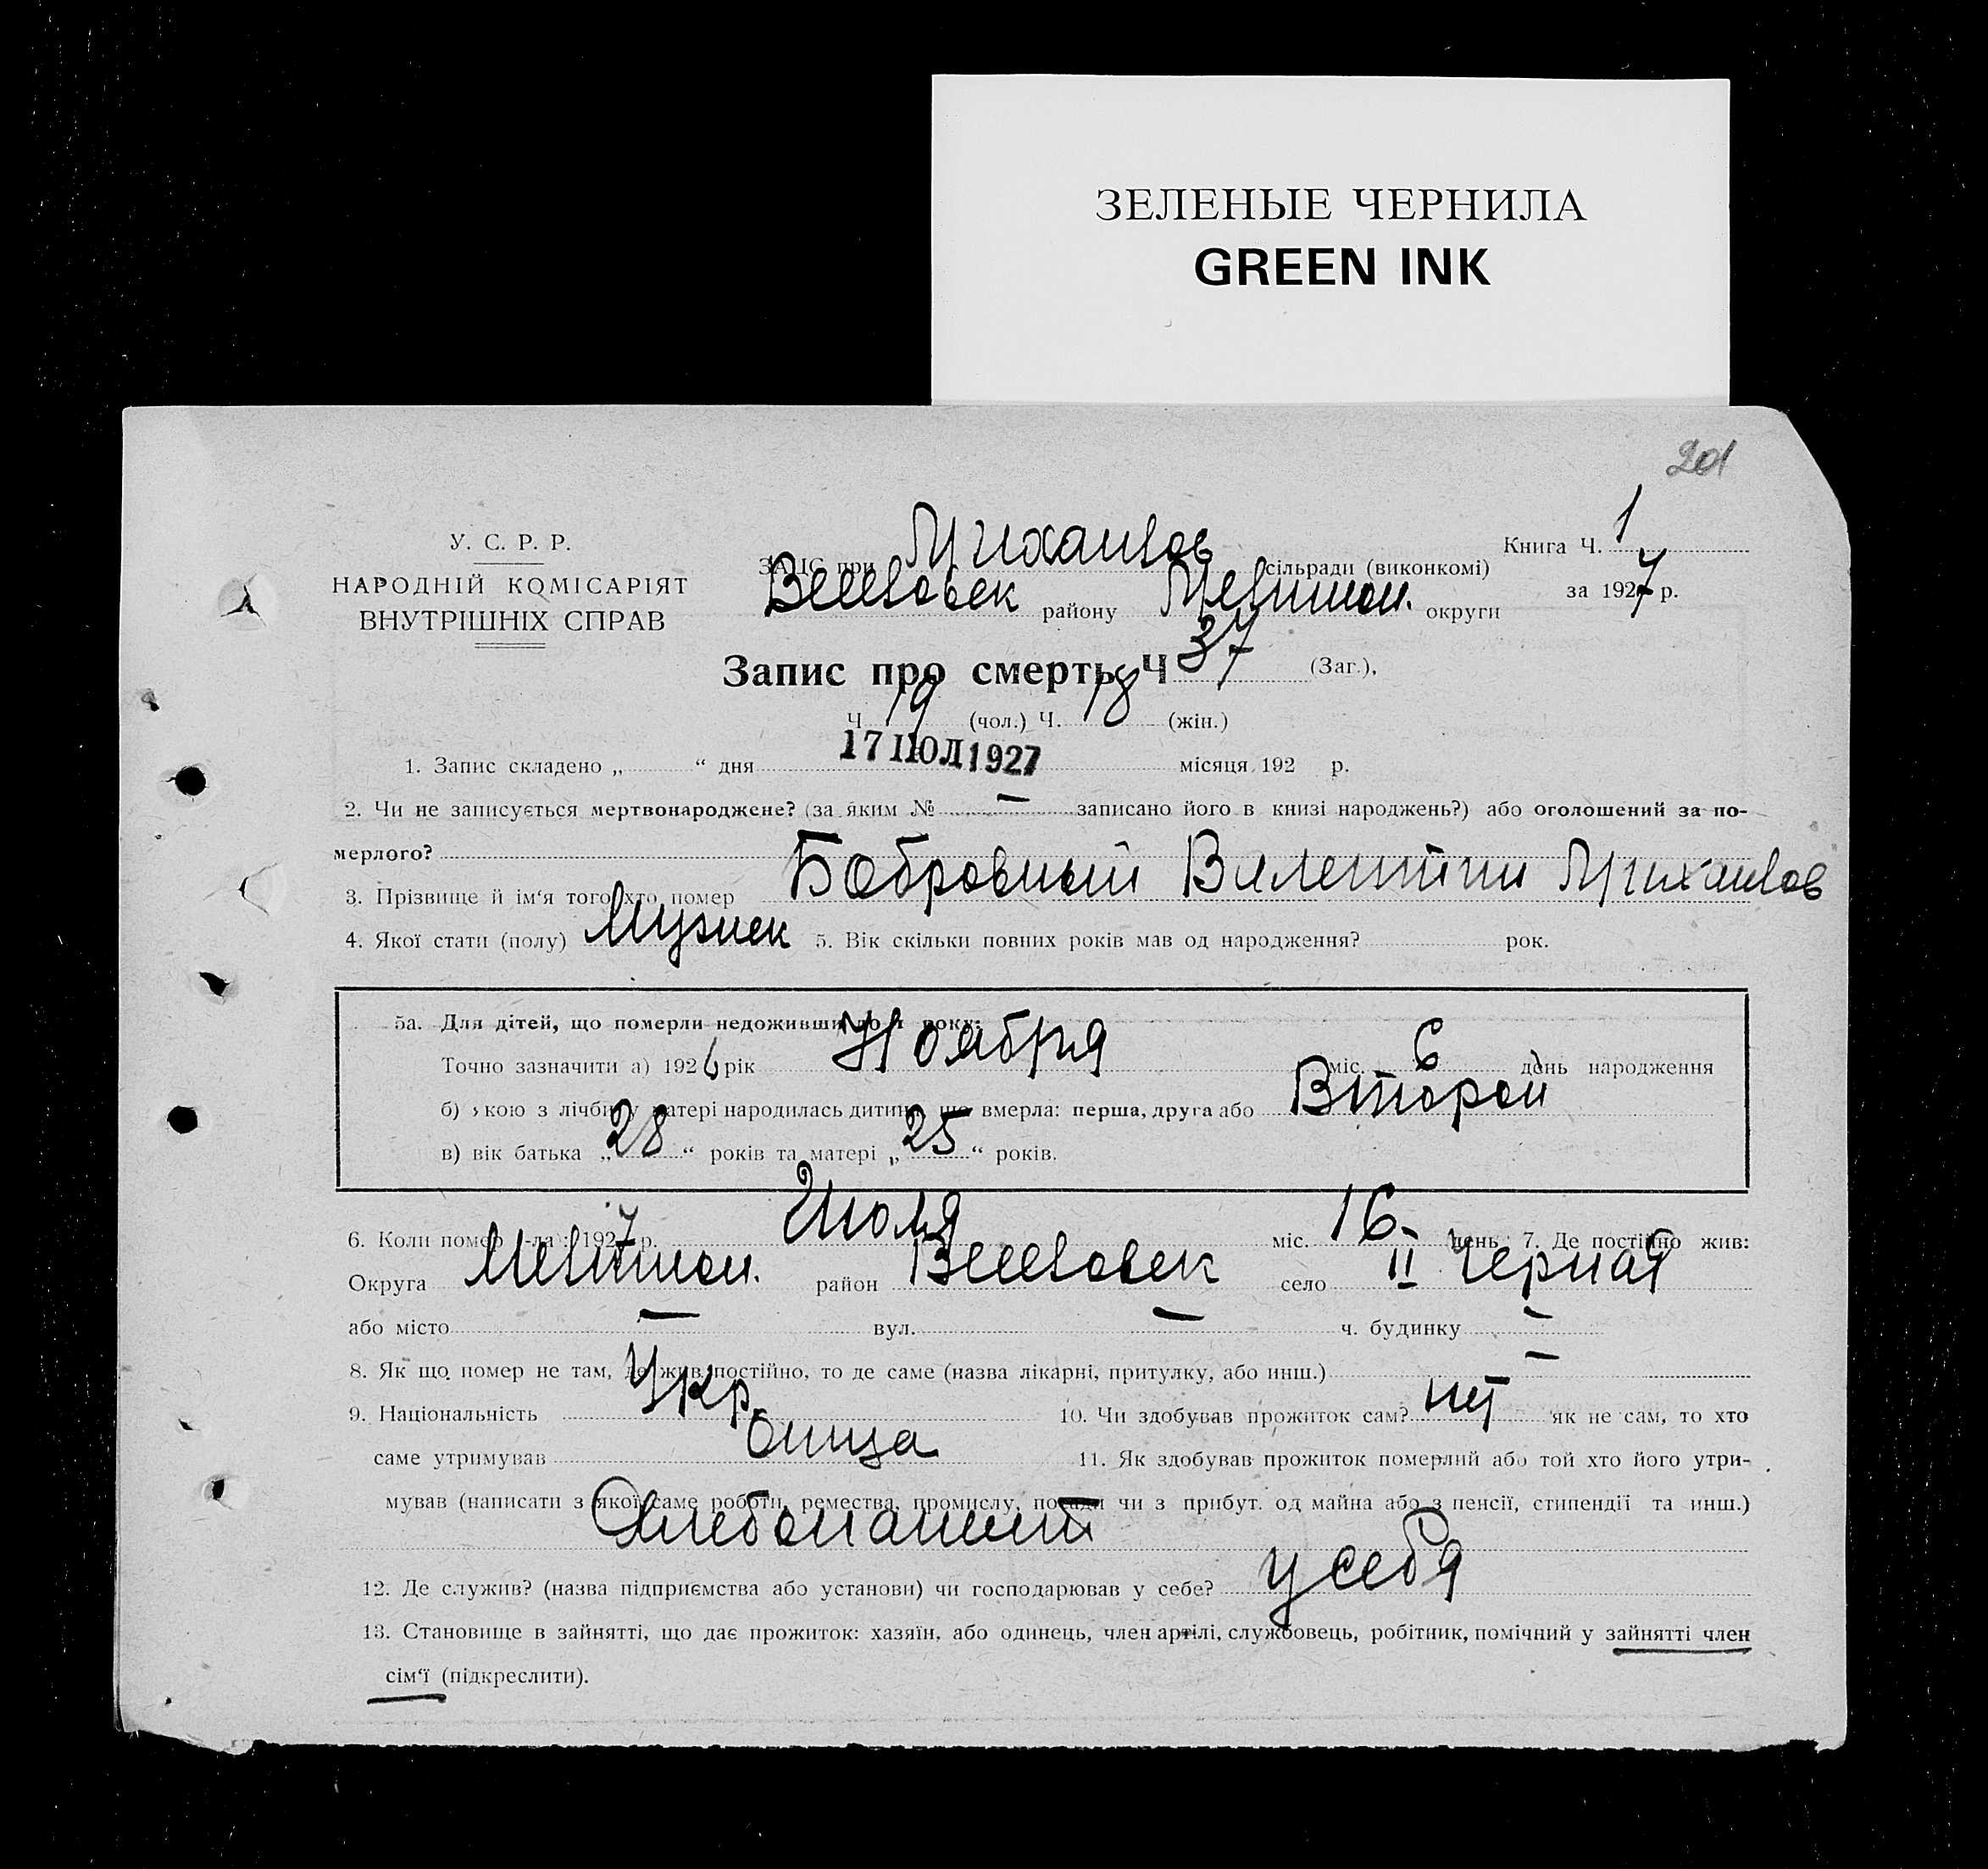 ЗЕЛЕНЫЕ ЧЕРНИЛА
GREEN INK
201
У. С. Р. Р.
НАРОДНІЙ КОМІСАРІЯТ
ВНУТРІШНІХ СПРАВ
ЗАЦС при Михайлов сільради (виконкомі)
Веселовск району Мелитоп. округи
Книга Ч. 1
за 1927 р.
Запис про смерть Ч 37 (Заг.),
Ч 19 (чол.) Ч. 18 (жін.)
1. Запис складено „ “ дня 17 ІЮЛ 1927 місяця 192 р.
2. Чи не записується мертвонароджене? (за яким № — записано його в книзі народжень?) або оголошений за по-
мерлого?
3. Прізвище й ім‘я того хто помер Бобровный Валентин Михайлов
4. Якої стати (полу) Мужск 5. Вік скільки повних років мав од народження? рок.
5а. Для дітей, що померли недоживши до 1 року:
Точно зазначити а) 1926 рік Ноября міс. 6 день народження
б) якою з лічби у матері народилась дитина, що вмерла: перша, друга або Второй
в) вік батька „28“ років та матері „25“ років.
6. Коли помер -ла: 1927 р. Июля міс. 16 день 7. Де постійно жив:
Округа Мелитоп. район Веселовск село II Черная
або місто — вул. — ч. будинку —
8. Як що помер не там, де жив постійно, то де саме (назва лікарні, притулку, або инш.) —
9. Національність Укр. 10. Чи здобував прожиток сам? нет як не сам, то хто
саме утримував Отца 11. Як здобував прожиток померлий або той хто його утри-
мував (написати з якої саме роботи, ремества, промислу, посади чи з прибут. од майна або з пенсії, стипендії та инш.)
Хлебопашест
12. Де служив? (назва підприємства або установи) чи господарював у себе? у себя
13. Становище в зайнятті, що дає прожиток: хазяїн, або одинець, член артілі, службовець, робітник, помічний у зайнятті член
сім‘ї (підкреслити).